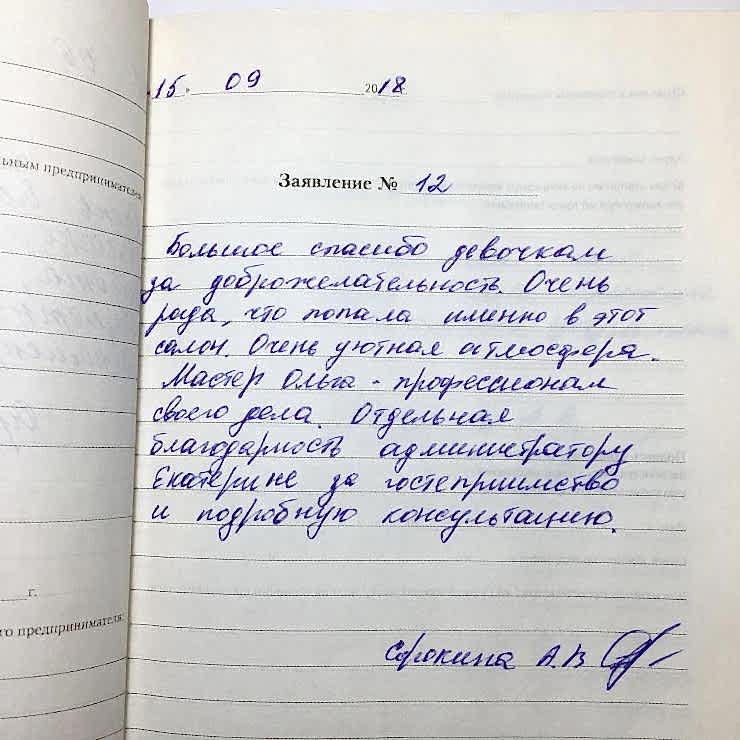 15 » 09 2018
Заявление № 12
Большое спасибо девочкам
за доброжелательность. Очень
рада, что попала именно в этот
салон. Очень уютная атмосфера.
Мастер Ольга - профессионал
своего дела. Отдельная
благодарность администратору
Екатерине за гостеприимство
и подробную консультацию.
Сорокина А.В
льным предпринимателем
г.
го предпринимателя: